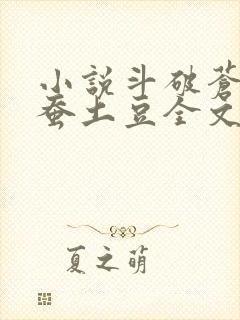 小說斗破蒼
蚕土豆全文
夏之萌